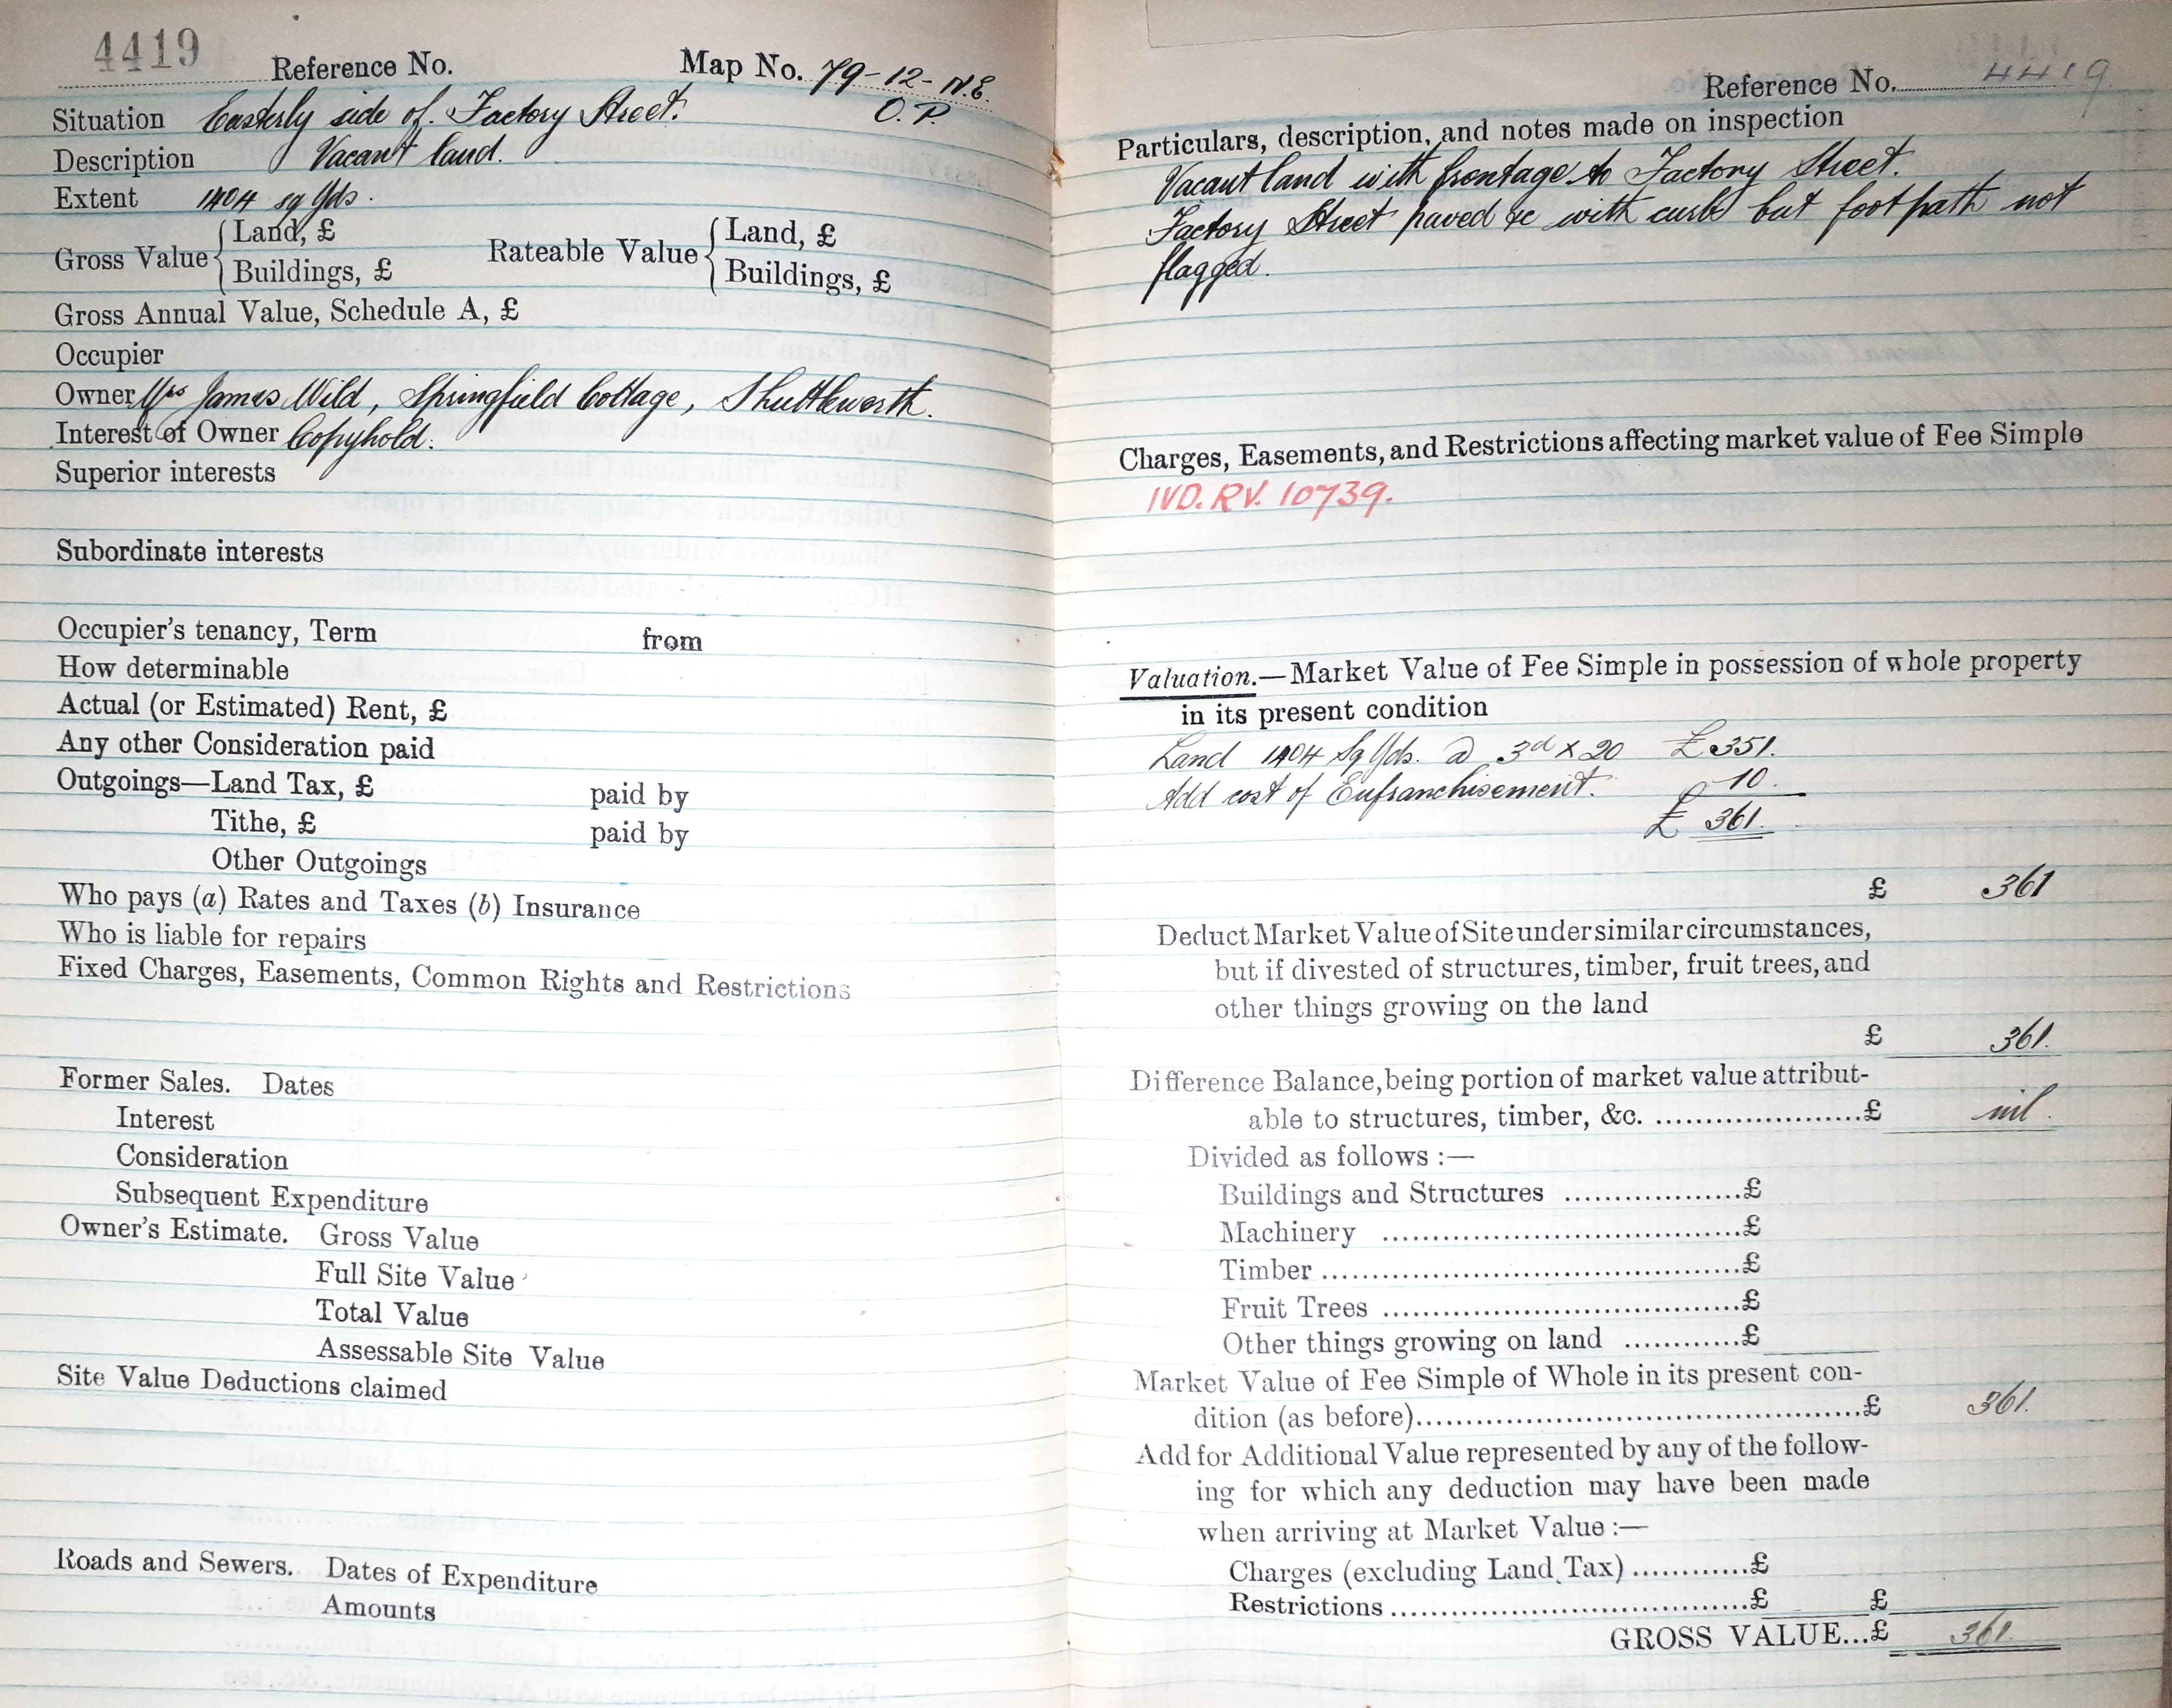 4419
Reference No. Map No. 79-12-N.E.
O.P.
Situation Easterly side of Factory Street.
Description Vacant land.
Extent 1404 sq Yds.
Gross Value { Land, £ Rateable Value { Land, £
Buildings, £ Buildings, £
Gross Annual Value, Schedule A, £
Occupier
Owner Mrs James Wild, Springfield Cottage, Shuttleworth.
Interest of Owner Copyhold.
Superior interests
Subordinate interests
Occupier's tenancy, Term from
How determinable
Actual (or Estimated) Rent, £
Any other Consideration paid
Outgoings—Land Tax, £ paid by
Tithe, £ paid by
Other Outgoings
Who pays (a) Rates and Taxes (b) Insurance
Who is liable for repairs
Fixed Charges, Easements, Common Rights and Restrictions
Former Sales. Dates
Interest
Consideration
Subsequent Expenditure
Owner's Estimate. Gross Value
Full Site Value
Total Value
Assessable Site Value
Site Value Deductions claimed
Roads and Sewers. Dates of Expenditure
Amounts
Reference No. 4419
Particulars, description, and notes made on inspection
Vacant land with frontage to Factory Street.
Factory Street paved &c with curb but footpath not
flagged.
Charges, Easements, and Restrictions affecting market value of Fee Simple
IVD. RV. 10739.
Valuation.—Market Value of Fee Simple in possession of whole property
in its present condition
Land 1404 Sq Yds. @ 3d x 20 £351.
Add cost of Enfranchisement. 10.
£ 361.
£ 361
Deduct Market Value of Site under similar circumstances,
but if divested of structures, timber, fruit trees, and
other things growing on the land
£ 361.
Difference Balance, being portion of market value attribut-
able to structures, timber, &c. ....................£ nil.
Divided as follows :—
Buildings and Structures ..................£
Machinery ....................................£
Timber ..........................................£
Fruit Trees ....................................£
Other things growing on land ............£
Market Value of Fee Simple of Whole in its present con-
dition (as before)............................................£ 361.
Add for Additional Value represented by any of the follow-
ing for which any deduction may have been made
when arriving at Market Value :—
Charges (excluding Land Tax) ............£
Restrictions ....................................£ £
GROSS VALUE...£ 361.